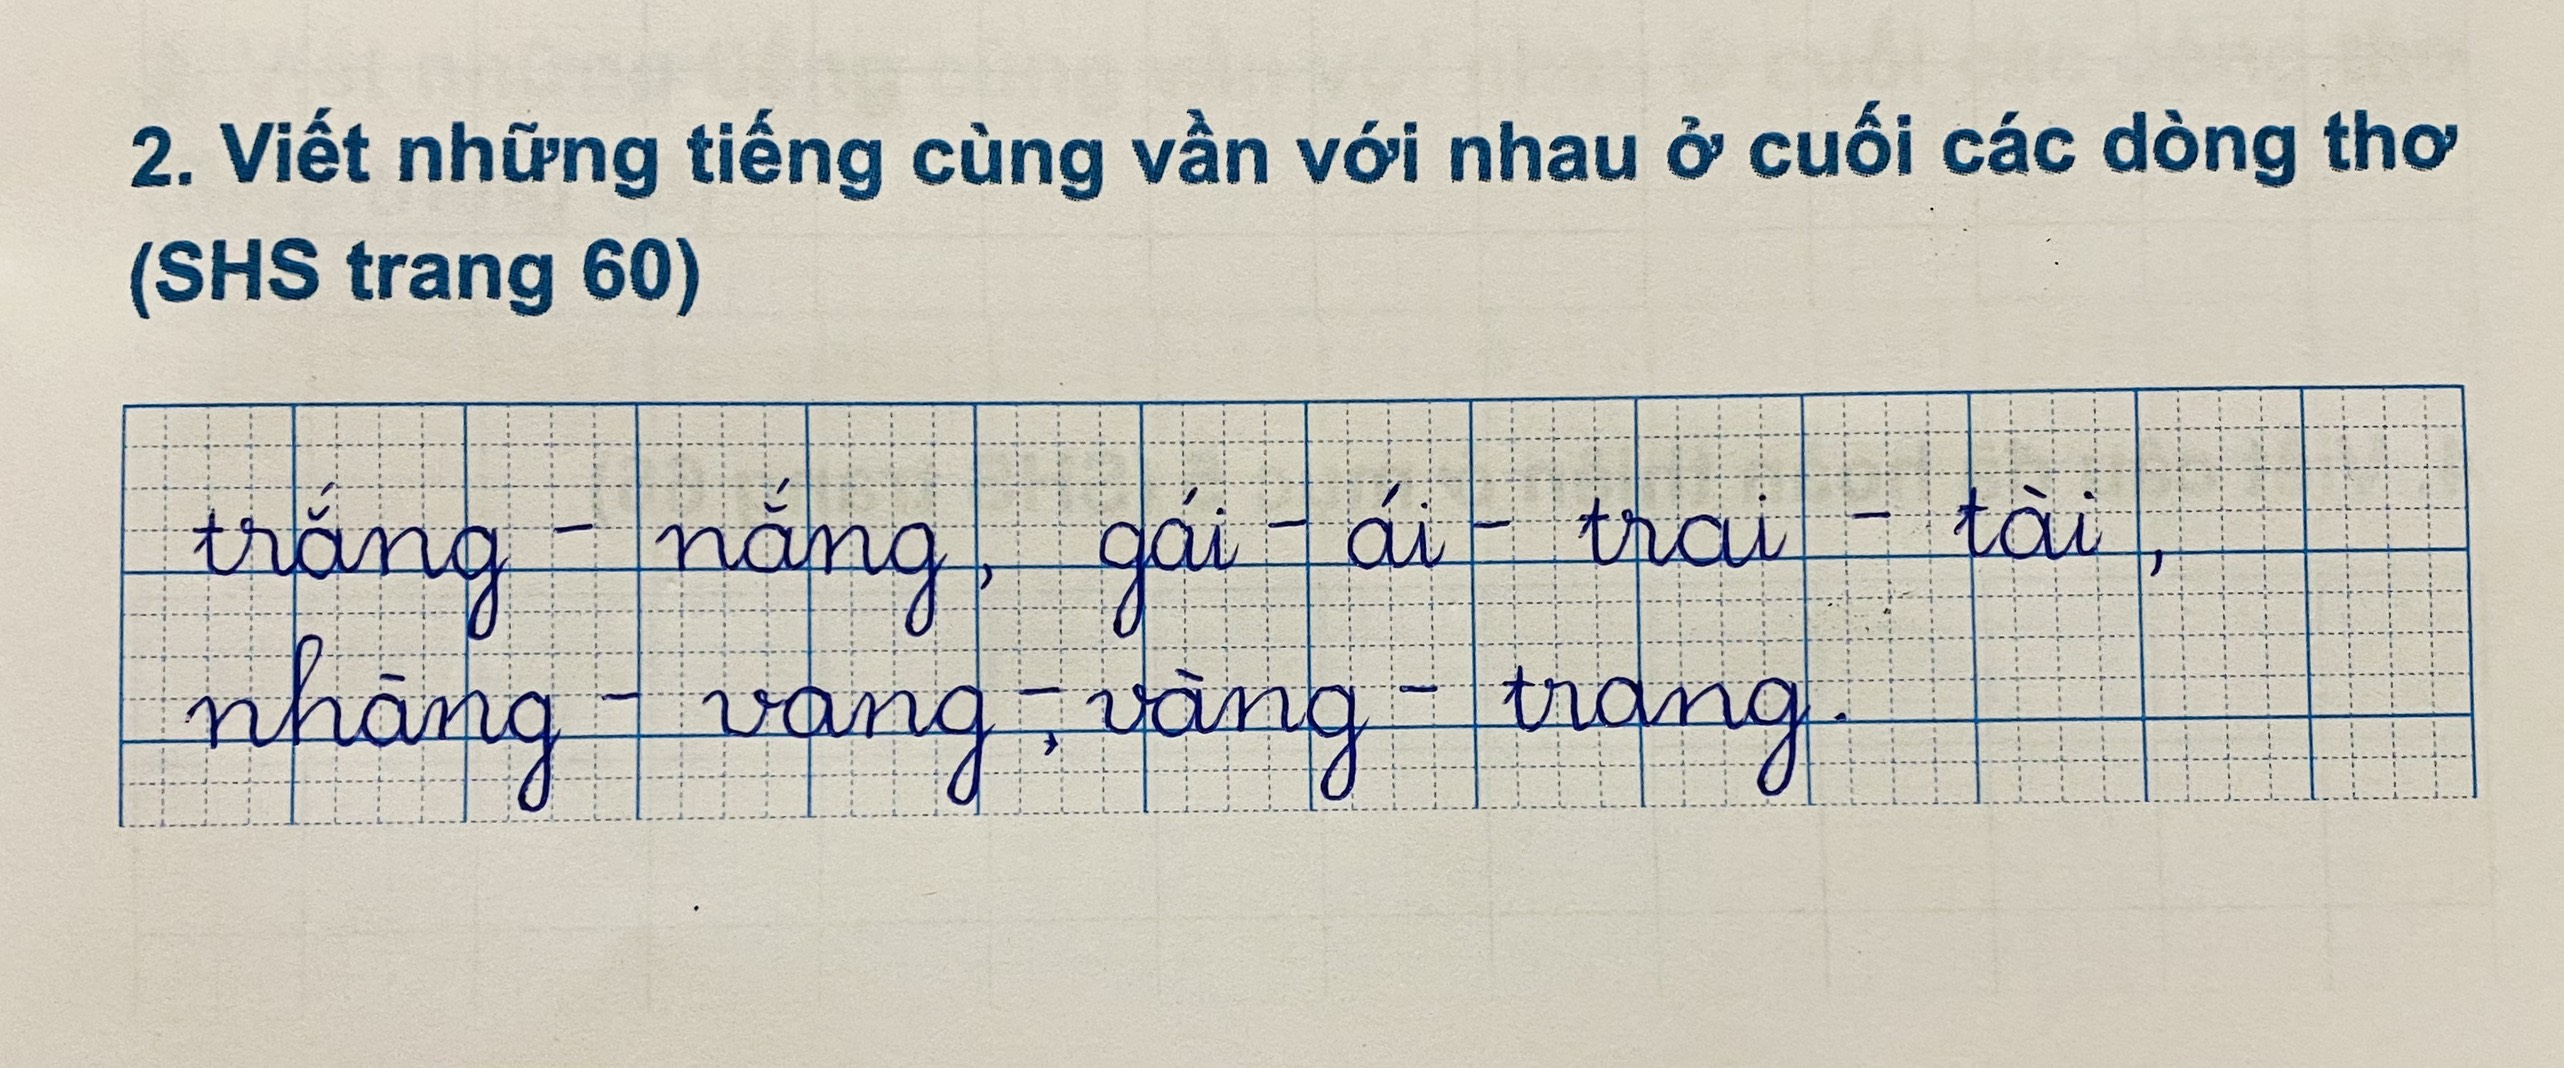 2. Viết những tiếng cùng vần với nhau ở cuối các dòng thơ
(SHS trang 60)
trắng - nắng, gái - ái - trai - tài,
nhāng - vang -, vàng - trang.